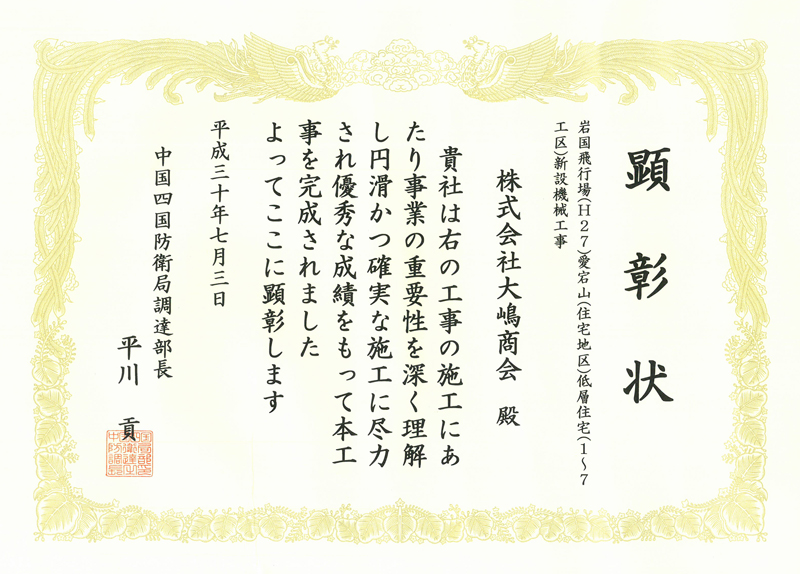 顕彰状
岩国飛行場(H27)愛宕山(住宅地区)低層住宅(1～7
工区)新設機械工事
株式会社大嶋商会 殿
貴社は右の工事の施工にあ
たり事業の重要性を深く理解
し円滑かつ確実な施工に尽力
され優秀な成績をもって本工
事を完成されました
よってここに顕彰します
平成三十年七月三日
中国四国防衛局調達部長
平川 貢